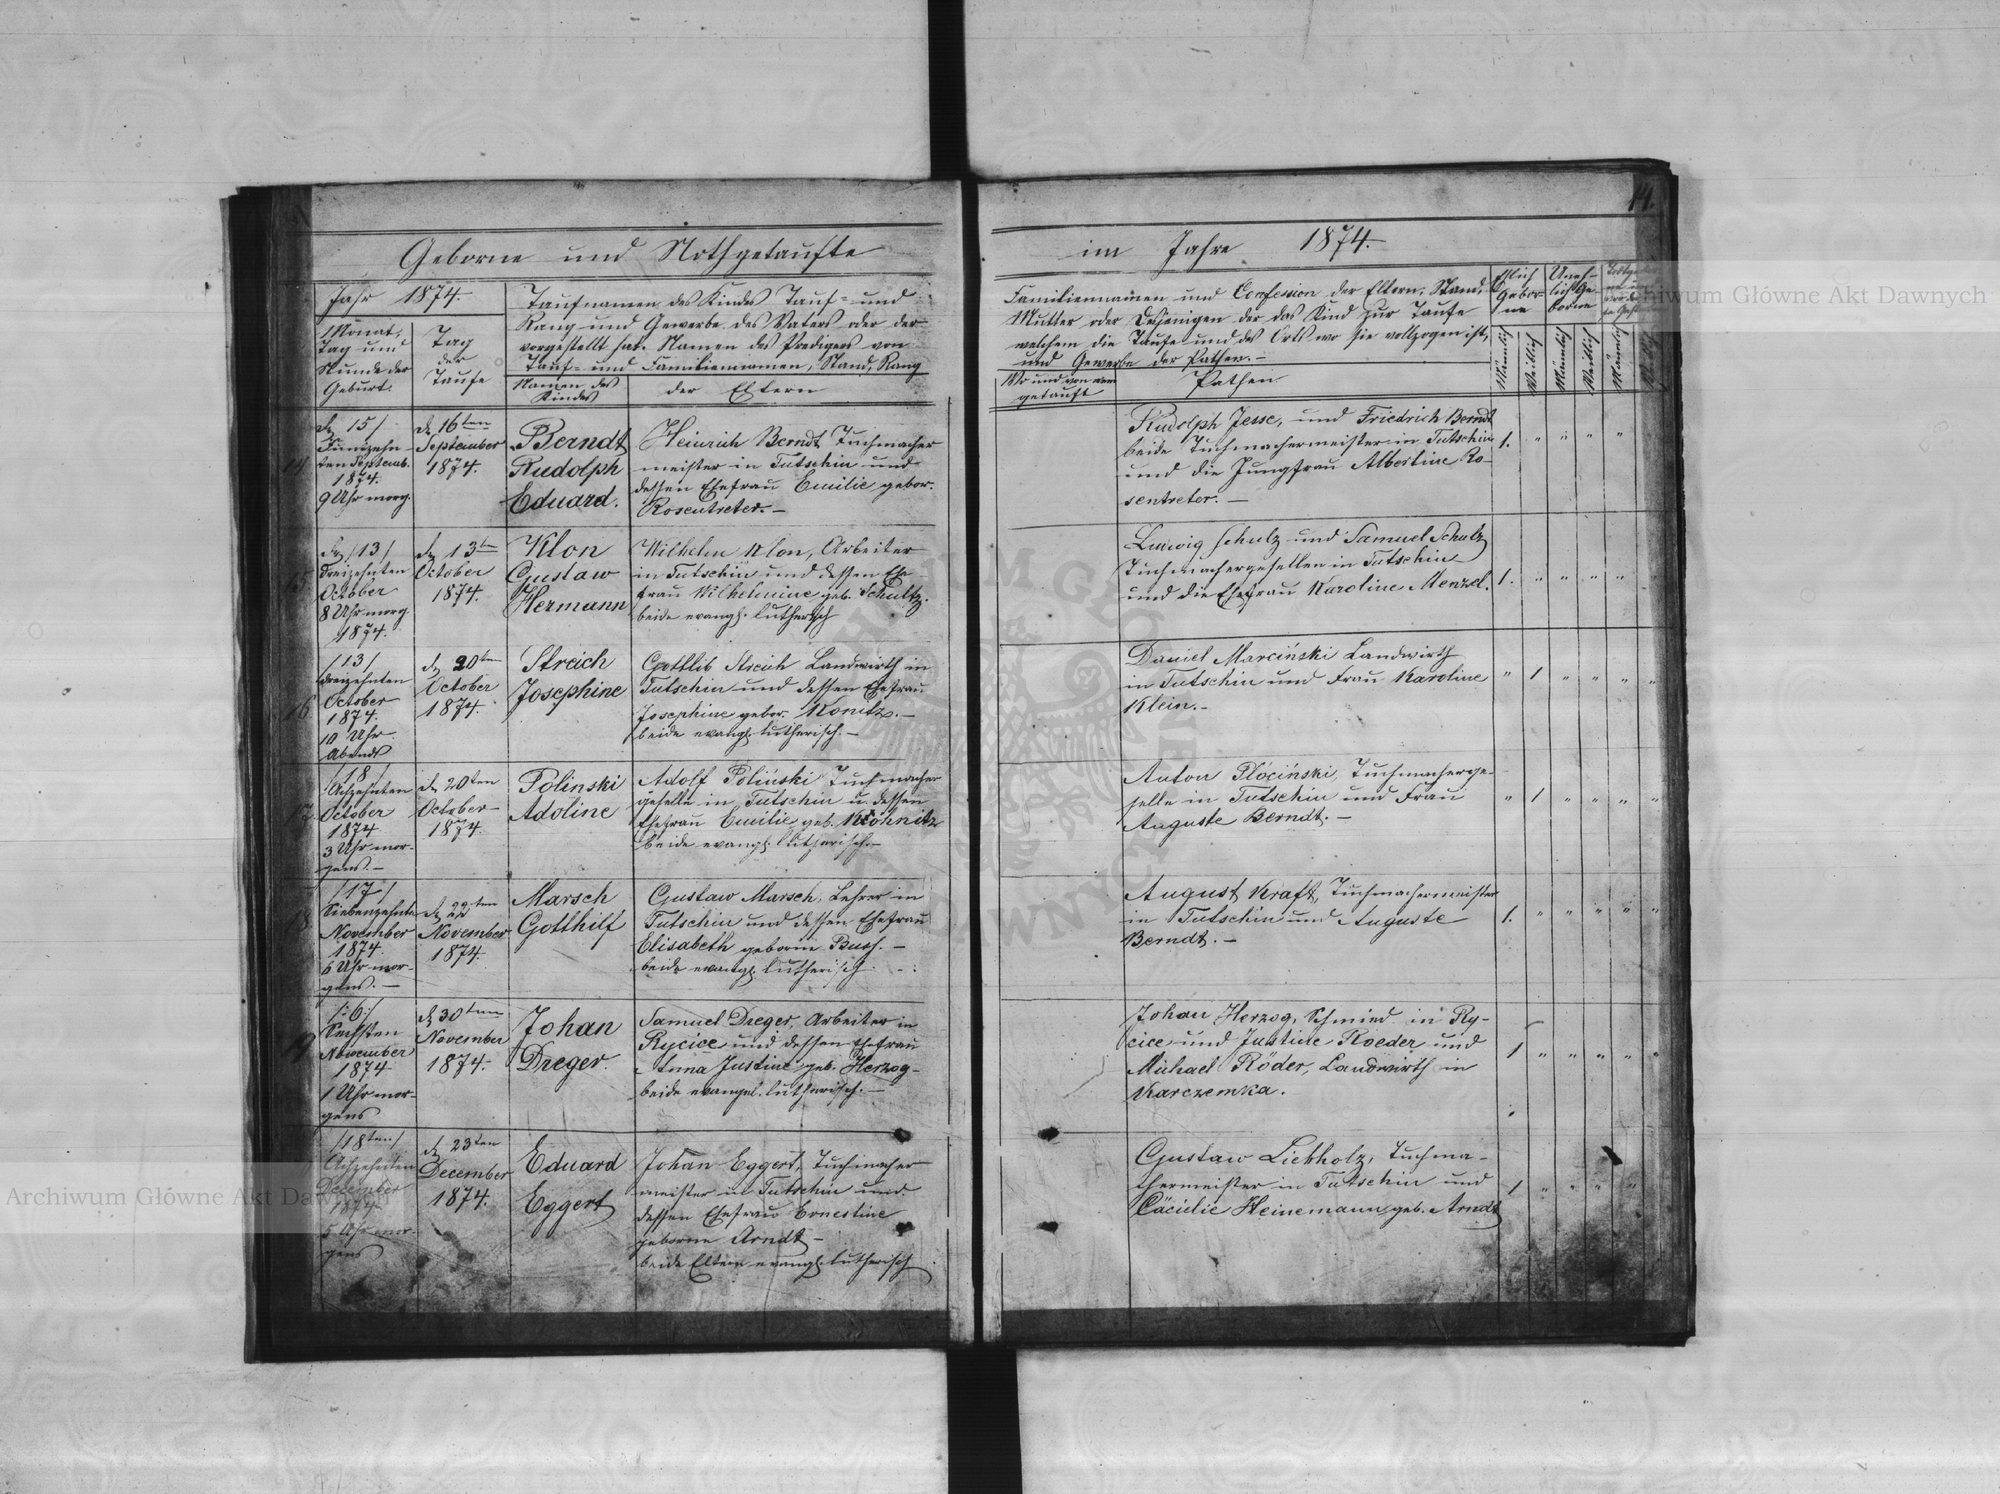 14.
Geborne und Nothgetaufte
im Jahre 1874.
Jahr 1874.
Monat,
Tag und
Stunde der
Geburt.
Tag
der
Taufe
Taufnamen des Kindes Tauf- und
Rang und Gewerbe des Vaters oder der
vorgestellt hat. Namen des Predigers von
Tauf- und Familiennamen, Stand, Rang
Namen des
Kindes
der Eltern
Familiennamen und Confession der Eltern, Stand,
Mutter oder Desjenigen der das Kind zur Taufe
welchem die Taufe und des Orts wo sie vollzogen ist,
und Gewerbe der Pathen.-
Wo und von wem
getauft
Pathen
Ehlich
Gebor-
ne
Uneh-
lich Ge-
borne
Männlich
Weiblich
Männlich
Weiblich
Männlich
14.
/15/
Fünfzehn-
ten Septemb.
1874.
9 Uhr morg.
d. 16ten
September
1874.
Berndt
Rudolph
Eduard.
Heinrich Berndt Tuchmacher
meister in Tutschin und
dessen Ehefrau Emilie gebor.
Rosentreter.-
Rudolph Jesse, und Friedrich Berndt
beide Tuchmachermeister in Tutschin
und die Jungfrau Albertine Ro-
sentreter.-
1. " " " "
15
/13/
Dreizehnten
October
8 Uhr morg.
1874.
d. 13t
October
1874.
Klon
Gustaw
Hermann
Wilhelm Klon, Arbeiter
in Tutschin und dessen Ehe-
frau Wilhelmine geb. Schultz.
beide evangl. lutherisch
Ludwig Schulz und Samuel Schulz
Tuchmachergesellen in Tutschin
und die Ehefrau Karoline Menzel.
1. " " " "
16
/13/
Dreizehnten
October
1874.
10 Uhr
Abends
d. 20ten
October
1874.
Streich
Josephine
Gottlib Streich Landwirth in
Tutschin und dessen Ehefrau
Josephine gebor. Konitz.-
beide evangl. lutherisch.-
Daniel Marciński Landwirth
in Tutschin und Frau Karoline
Klein.-
" 1 " " " "
17
/18/
Achzehnten
October
1874
3 Uhr mor-
gens.-
d. 20ten
October
1874.
Polinski
Adoline
Adolf Poliński Tuchmacher
geselle in Tutschin u. dessen
Ehefrau Emilie geb. Köhnitz
beide evangl. lutherisch.-
Anton Płóciński, Tuchmacherge-
selle in Tutschin und Frau
Auguste Berndt.-
" 1 " " " "
18.
/17/
Siebenzehnte
November
1874
6 Uhr mor-
gens.-
d. 22ten
November
1874.
Marsch
Gotthilf
Gustaw Marsch, Lehrer in
Tutschin und dessen Ehefrau
Elisabeth geborne Buss.-
beide evangl. lutherisch.
August Kraft, Tuchmachermeister
in Tutschin und Auguste
Berndt.-
1. " " " " "
19
/:6:/
Sechsten
November
1874
1 Uhr mor-
gens
d. 30ten
November
1874.
Johan
Dreger.
Samuel Dreger, Arbeiter in
Rycice und dessen Ehefrau
Anna Justine geb. Herzog-
beide evangel. lutherisch.-
Johan Herzog, Schmied in Ry-
cice und Justine Roeder und
Michael Röder, Landwirth in
Karczemka.
1 " " " " "
/18ten/
Achzehnten
December
1874
5 Uhr mor-
gens
d. 23ten
December
1874.
Eduard
Eggert
Johan Eggert, Tuchmacher
meister in Tutschin und
dessen Ehefrau Ernestine
geborne Arndt-
beide Eltern evangl. lutherisch.
Gustaw Liebholz, Tuchma-
chermeister in Tutschin und
Cäcielie Heinemann geb. Arndt
1 " " " "
Archiwum Główne Akt Dawnych
Archiwum Główne Akt Dawnych